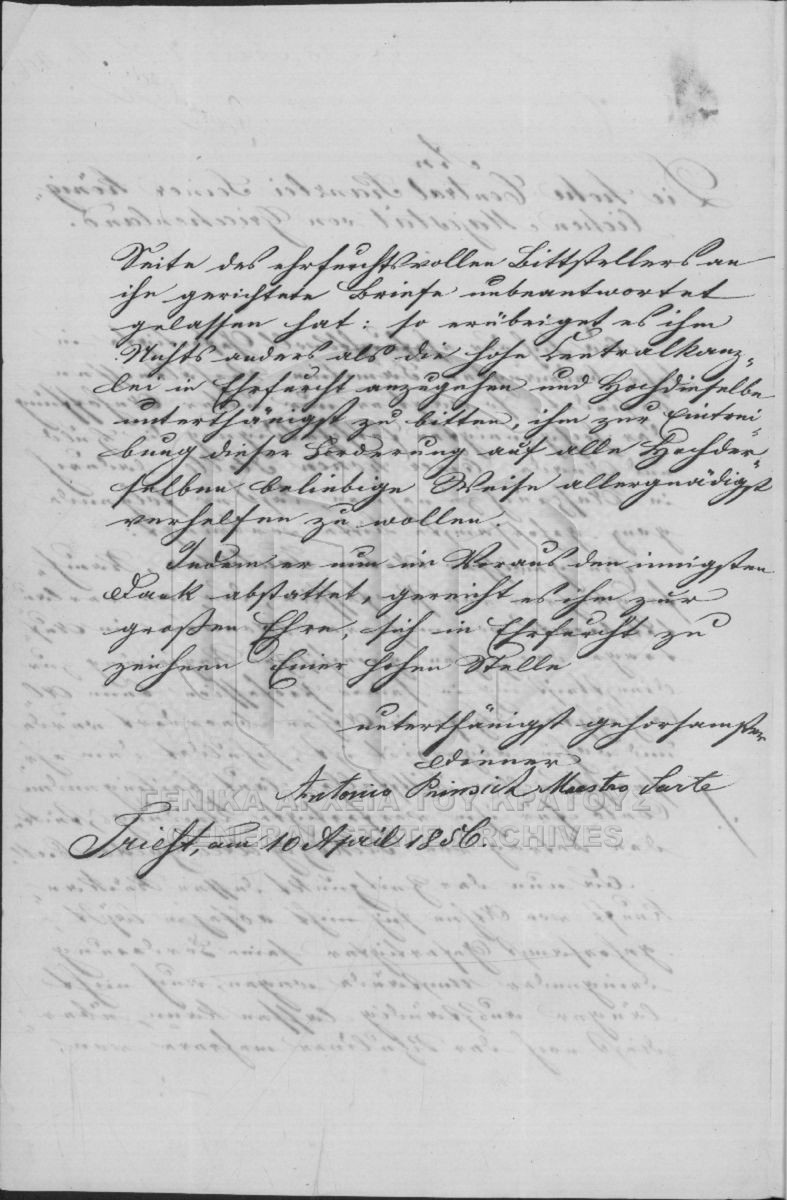 Seite des ehrfurchtsvollen Bittstellers an
ihn gerichtete Briefe unbeantwortet
gelassen hat: so erübriget es ihm
Nichts anders als die hohe Centralkanz-
lei in Ehrfurcht anzugehen und Hochdieselbe
unterthänigst zu bitten, ihm zur Eintrei-
bung dieser Forderung auf alle Hochder-
selben beliebige Weise allergnädigst
verhelfen zu wollen.
Indem er nun im Voraus den innigsten
Dank abstattet, gereicht es ihm zur
großen Ehre, sich in Ehrfurcht zu
zeichnen Einer hohen Stelle
unterthänigst gehorsamster
Diener
Antonio Maestro Sarte
Triest, am 10 April 1856.
ΓΕΝΙΚΑ ΑΡΧΕΙΑ ΤΟΥ ΚΡΑΤΟΥΣ
GENERAL STATE ARCHIVES